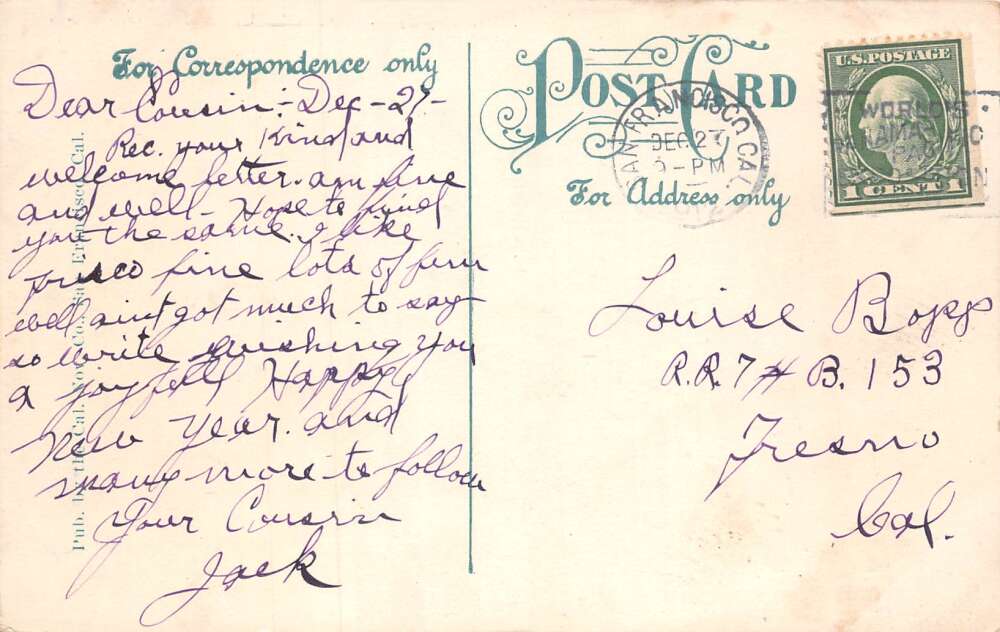 For Correspondence only
Dear Cousin:- Dec - 27-
Rec. your kind and
welcome letter. am fine
and well - Hope to find
you the same. I like
frisco fine lots of fun
well aint got much to say
so write wishing you
a joyfull Happy
New Year. and
many more to follow
Your Cousin
Jack
Pub. by the Cal. Nov. Co., San Francisco, Cal.
POST CARD
For Address only
SAN FRANCISCO, CAL.
DEC 27
-PM
1912
WORLD'S
U.S. POSTAGE
1 CENT 1
Louise Bopp
R.R. 7 # B. 153
Fresno
Cal.